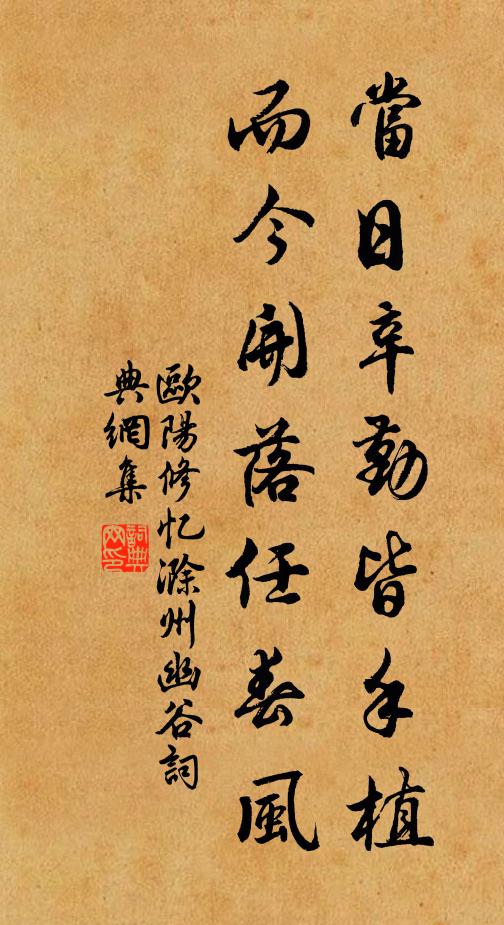 當日辛勤皆手植
而今開落任春風
歐陽修忆滁州幽谷詞
典網集
詞典
网印